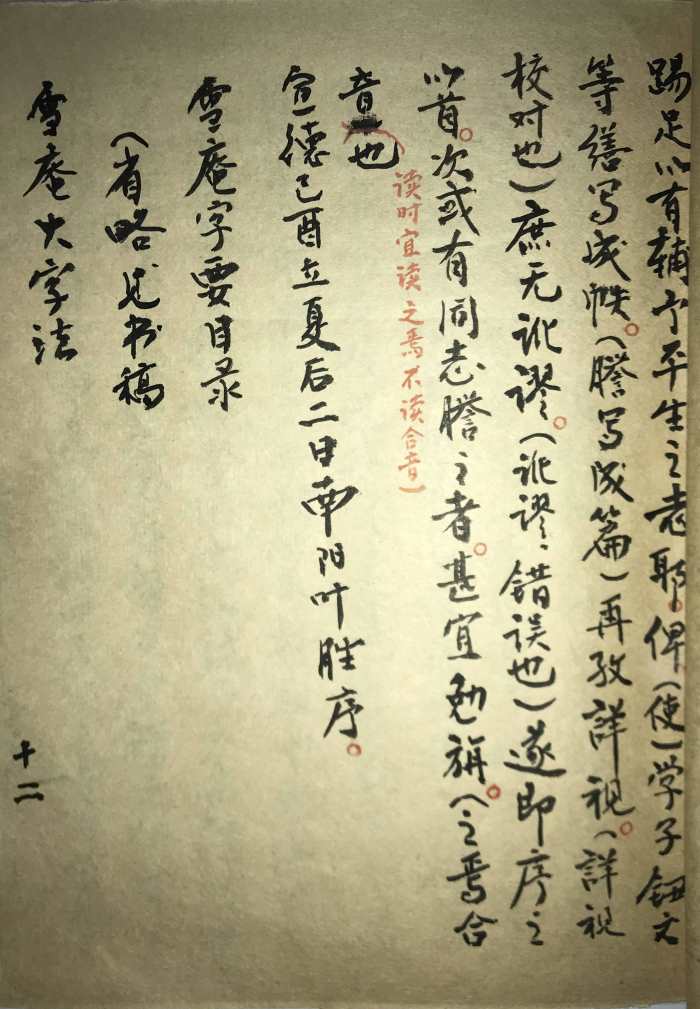 踢足以有辅于平生之志耶。俾（使）学子钮文
等缮写成帙。（誊写成篇）再孜詳視。（詳視
校对也）庶无讹谬。（讹谬：错误也）遂即序之
以首。次或有同志誊之者。甚宜勉旃。（之焉合
音也
读时宜读之焉不读合音）
宣德己酉立夏后二日南阳叶胜序。
雪庵字要目录
（省略见书稿
雪庵大字法
十二